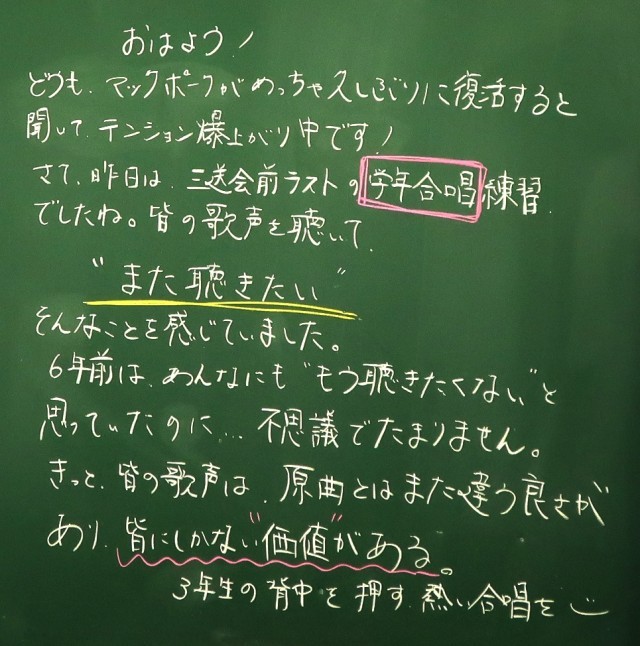 おはよう!
どうも、マックポークがめっちゃ久しぶりに復活すると
聞いて、テンション爆上がり中です!
さて、昨日は、三送会前ラストの学年合唱練習
でしたね。皆の歌声を聴いて、
“また聴きたい”
そんなことを感じていました。
6年前は、あんなにも“もう聴きたくない”と
思っていたのに… 不思議でたまりません。
きっと、皆の歌声は、原曲とはまた違う良さが
あり、皆にしかない“価値”がある。
3年生の背中を押す、熱い合唱を